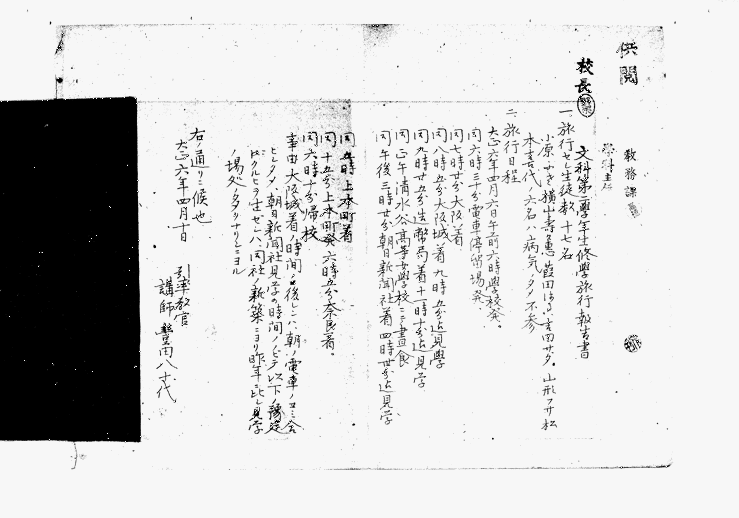 供閲
教務課
校長
学科主任
文科第二學年生修學旅行報告書
一、旅行セル生徒数 十七名
小原ふき 横山壽惠 葭田 サダ。山形フサ 松
本喜代ノ六名ハ病気ノタメ不参
二、旅行日程
大正六年四月六日午前六時學校発。
同六時三十分電車停留場発、
同七時廿分大阪着
同八時五分大阪城着 九時五分迄見學
同九時廿五分造幣局着 十一時十分迄見学
同正午清水谷高等女學校ニテ晝食
同午後三時廿分朝日新聞社着 四時廿分迄見学
同五時上本町着
同十五分上本町発 六時五分奈良着。
同六時十分帰校
大阪城着ノ時間ノ後レシハ、朝ノ電車ノコミ合
ヒシタメ、朝日新聞社見学の時間ノ 以下豫定
ハ、同社ノ新築ニヨリ昨年ニ比シ見学
ノ場処ノ ナリシニヨル
右ノ通リニ候也
大正六年四月十日
引率教官
講師 豊田八十代